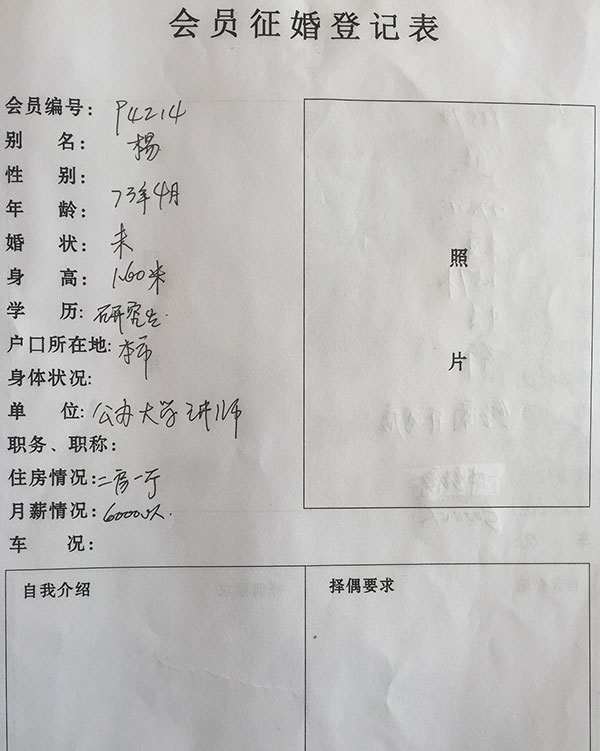 会员征婚登记表
会员编号: P4214
别 名: 楊
性 别:
年 龄: 73年4月
婚 状: 未
身 高: 1.60米
学 历: 研究生
户口所在地: 本市
身体状况:
单 位: 公办大学讲师
职务、职称:
住房情况: 二房一厅
月薪情况: 6000以
车 况:
照
片
自我介绍
择偶要求